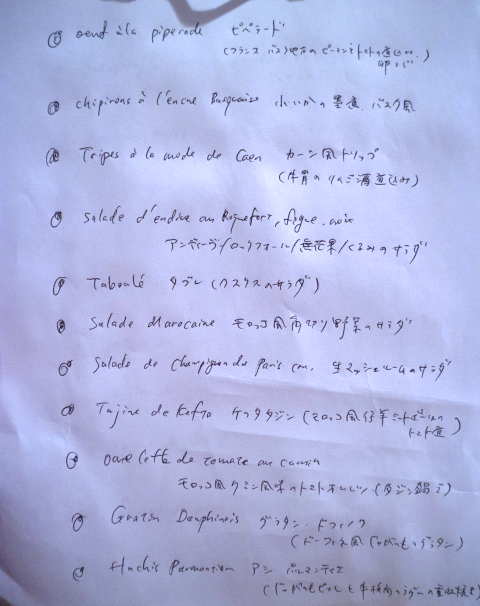 oeuf à la piperade ピペラード
(フランス バスク地方のピーマンとトマトの煮込み.
chipirons à l'encre Basquaise 小いかの墨煮. バスク風
Tripes à la mode de Caen カーン風トリップ
(牛胃のリンゴ酒煮込み)
Salade d'endive au Roquefort, figue, noix
アンディーヴ/ロックフォール/無花果/くるみのサラダ
Taboulé タブレ (クスクスのサラダ)
Salade Marocaine モロッコ風角切り野菜のサラダ
Salade de Champignon du Paris cru. 生マッシュルームのサラダ
Tajine de Kefta ケフタタジン (モロッコ風仔羊ミートボールの
トマト煮)
omelette de tomate au cumin
モロッコ風クミン風味のトマトオムレツ (タジン鍋で)
Gratin Dauphinois グラタン・ドフィノワ
(ドーフィネ風じゃがいものグラタン)
Hachis Parmentier アシ パルマンティエ
(じゃがいものピュレと牛挽肉のラグーの重ね焼き)